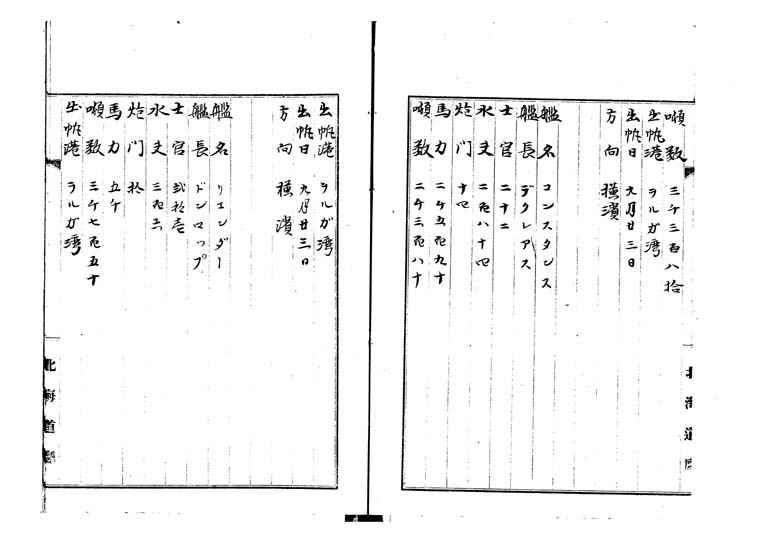 噸数 三千三百八拾
出帆港 ヲルガ湾
出帆日 九月廿三日
方向 横濱
艦名 コンスタンス
艦長 デクレアス
士官 二十二
水夫 二百八十四
炮門 十四
馬力 二千五百九十
噸数 二千三百八十
北海道廳
出帆港 ヲルガ湾
出帆日 九月廿三日
方向 横濱
艦名 リエンダー
艦長 ドンロップ
士官 弐拾壱
水夫
炮門 拾
馬力 五千
噸数 三千七百五十
出帆港 ヲルガ湾
北海道廳